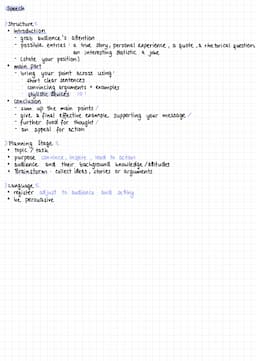 Speech
Structure:
• Introduction
- grab audience's attention
- possible entries: a true story, personal experience, a quote, a rhetorical question,
an interesting statistic, a joke
- (state your position)
• main part
- bring your point across using:
short clear sentences
convincing arguments + examples
stylistic devices
• Conclusion
- sum up the main points
- give a final effective example, supporting your message
- further food for thought
- an appeal for action
Planning stage:
• topic / task
• purpose: convince, inspire, lead to action
• audience and their background knowledge / attitudes
• Brainstorm: collect ideas, stories or arguments
Language:
• register: adjust to audience and setting
• be persuasive